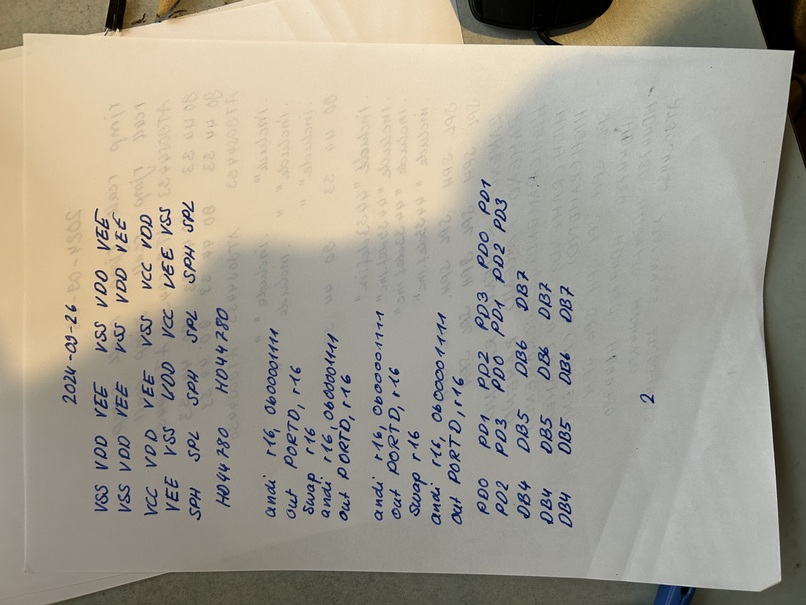 2024-09-26
VSS VDD VEE VSS VDD VEE
VSS VDD VEE VSS VDD VEE
VCC VDD VEE VSS VCC VDD
VEE VSS VDD VCC VEE VSS
SPH SPL SPH SPL SPH SPL
HD44780 HD44780
andi r16, 0b00001111
out PORTD, r16
swap r16
andi r16, 0b00001111
out PORTD, r16
andi r16, 0b00001111
out PORTD, r16
swap r16
andi r16, 0b00001111
out PORTD, r16
PD0 PD1 PD2 PD3 PD0 PD1
PD2 PD3 PD0 PD1 PD2 PD3
DB4 DB5 DB6 DB7
DB4 DB5 DB6 DB7
DB4 DB5 DB6 DB7
2